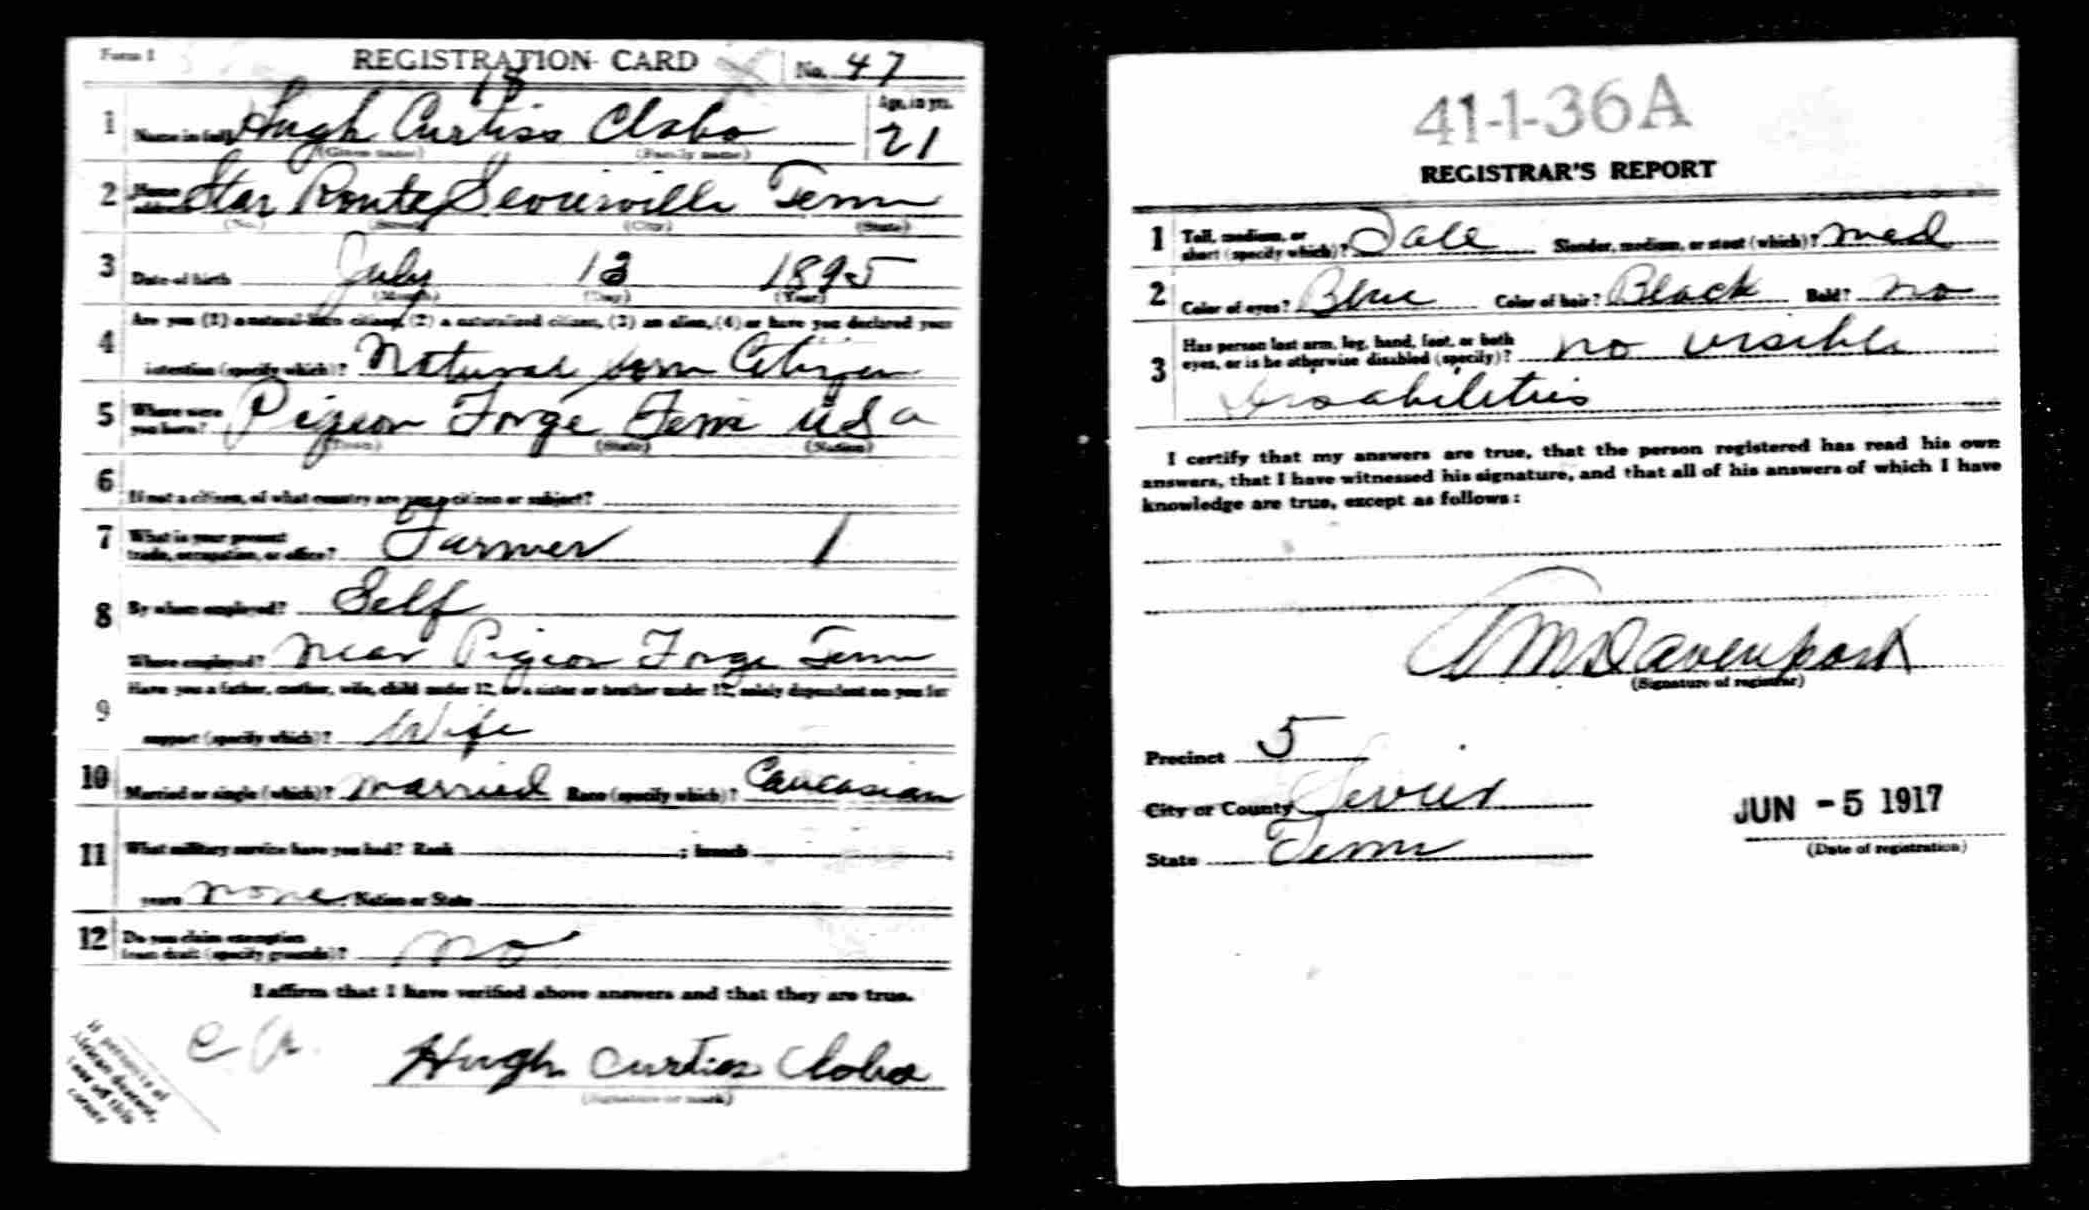 Form 1 REGISTRATION CARD No. 47
18
1 Name in full Hugh Curtiss Clabo Age, in yrs. 21
(Given name) (Family name)
2 Home address Star Route Sevierville Tenn
(No.) (Street) (City) (State)
3 Date of birth July 13 1895
(Month) (Day) (Year)
4 Are you (1) a natural-born citizen, (2) a naturalized citizen, (3) an alien, (4) or have you declared your
intention (specify which)? Natural born Citizen
5 Where were you born? Pigeon Forge Tenn USA
(Town) (State) (Nation)
6 If not a citizen, of what country are you a citizen or subject?
7 What is your present trade, occupation, or office? Farmer 1
8 By whom employed? Self
Where employed? Near Pigeon Forge Tenn
9 Have you a father, mother, wife, child under 12, or a sister or brother under 12, solely dependent on you for
support (specify which)? Wife
10 Married or single (which)? married Race (specify which)? Caucasian
11 What military service have you had? Rank ; branch ;
years none Nation or State
12 Do you claim exemption from draft (specify grounds)? no
I affirm that I have verified above answers and that they are true.
Hugh Curtiss Clabo
(Signature or mark)
If person is of
African descent,
tear off this
corner
41-1-36A
REGISTRAR'S REPORT
1 Tall, medium, or short (specify which)? Tall Slender, medium, or stout (which)? med
2 Color of eyes? Blue Color of hair? Black Bald? no
3 Has person lost arm, leg, hand, foot, or both eyes, or is he otherwise disabled (specify)? no visible
disabilities
I certify that my answers are true, that the person registered has read his own
answers, that I have witnessed his signature, and that all of his answers of which I have
knowledge are true, except as follows:
Davenport
(Signature of registrar)
Precinct 5
City or County Sevier
JUN -5 1917
State Tenn
(Date of registration)